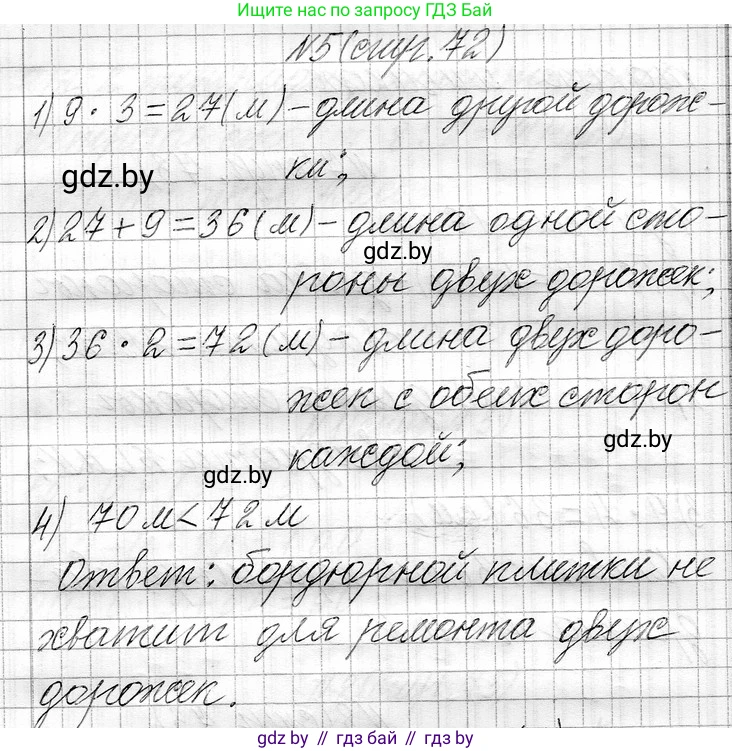 Ищите нас по запросу ГДЗ Бай
№5 (стр. 72)
1) 9 · 3 = 27 (м) – длина другой дорож-
ки;
gdz.by
2) 27 + 9 = 36 (м) – длина одной сто-
gdz.by
роны двух дорожек;
3) 36 · 2 = 72 (м) – длина двух доро-
жек с обеих сторон
gdz.by
каждой;
gdz.by
4) 70 м < 72 м
Ответ: бордюрной плитки не
хватит для ремонта двух
дорожек.
gdz.by // гдз бай // гдз by